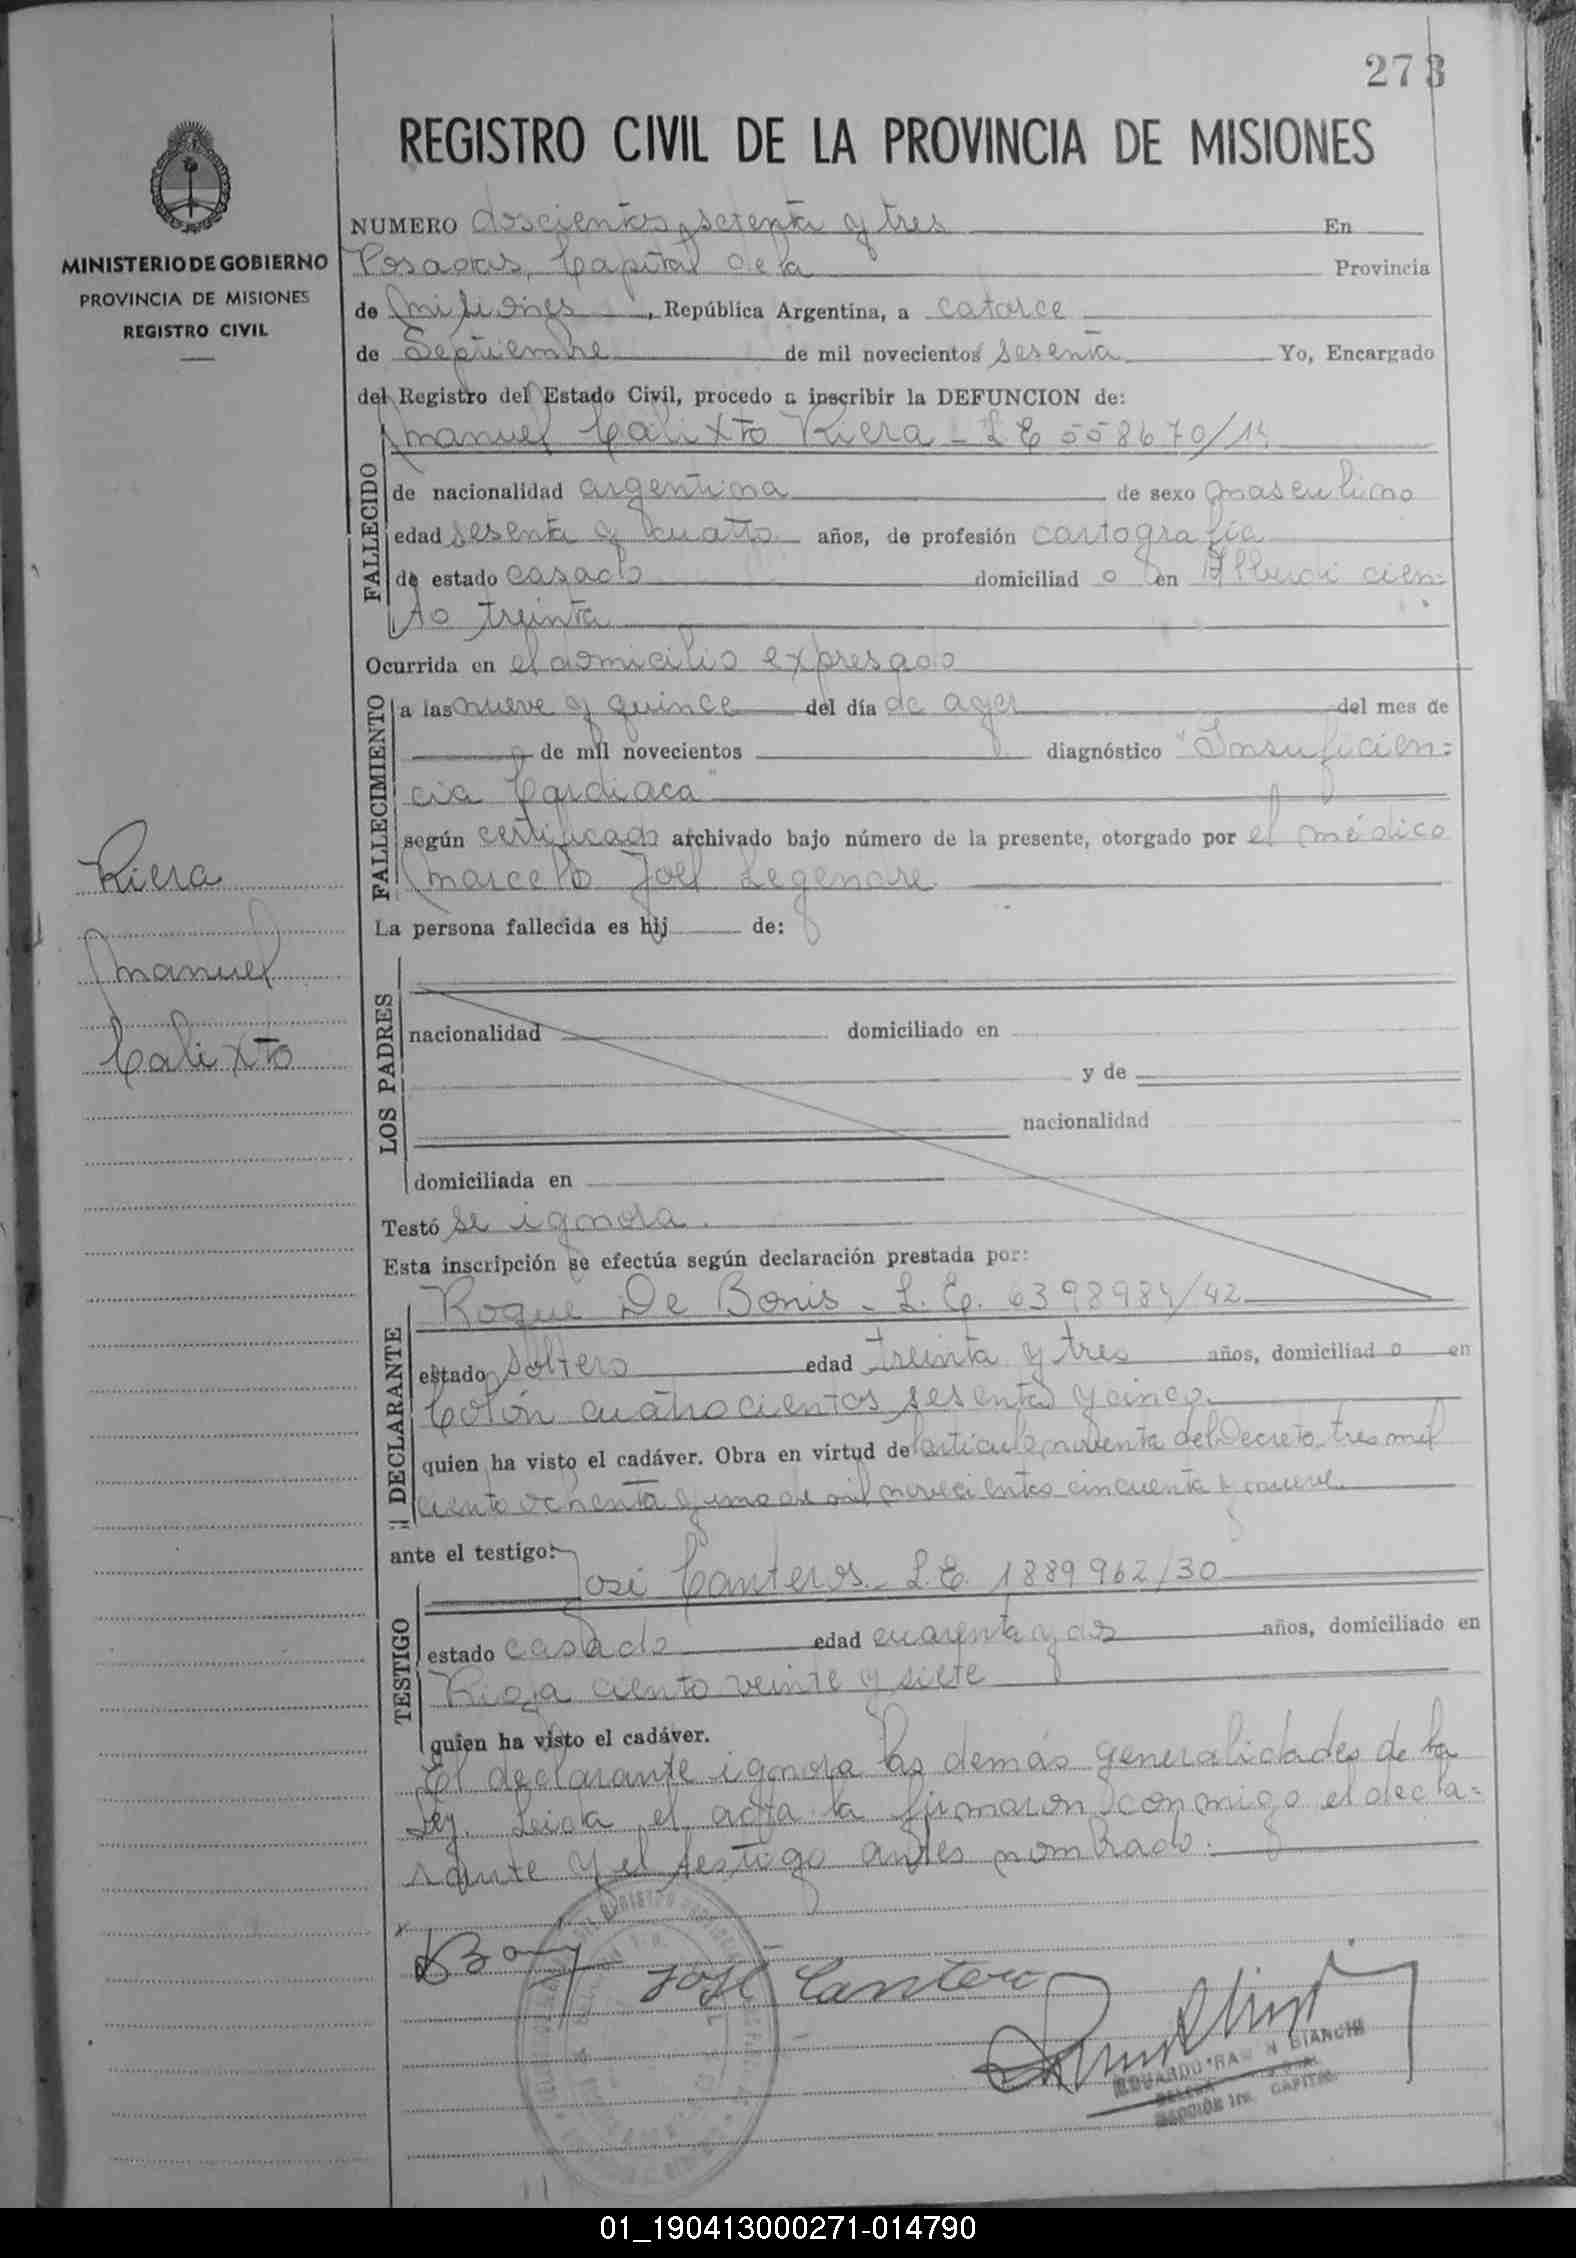 273
REGISTRO CIVIL DE LA PROVINCIA DE MISIONES
MINISTERIO DE GOBIERNO
PROVINCIA DE MISIONES
REGISTRO CIVIL
NUMERO doscientos setenta y tres En
Posadas, Capital de la Provincia
de Misiones, República Argentina, a catorce
de Septiembre de mil novecientos sesenta Yo, Encargado
del Registro del Estado Civil, procedo a inscribir la DEFUNCION de:
Manuel Calixto Riera - L E 558670/14
FALLECIDO
de nacionalidad argentina de sexo masculino
edad sesenta y cuatro años, de profesión cartografía
de estado casado domiciliad o en Alberdi cien-
to treinta
Ocurrida en el domicilio expresado
FALLECIMIENTO
a las nueve y quince del día de ayer del mes de
de mil novecientos diagnóstico "Insuficien=
cia Cardiaca"
según certificado archivado bajo número de la presente, otorgado por el médico
Marcelo Joel
La persona fallecida es hij de:
Riera
Manuel
Calixto
LOS PADRES
nacionalidad domiciliado en
y de
nacionalidad
domiciliada en
Testó se ignora.
Esta inscripción se efectúa según declaración prestada por:
Roque De Bonis - L. E. 6398984/42
DECLARANTE
estado soltero edad treinta y tres años, domiciliad o en
Colón cuatrocientos sesenta y cinco.
quien ha visto el cadáver. Obra en virtud del artículo noventa del Decreto tres mil
ciento ochenta y uno de mil novecientos cincuenta y nueve.
ante el testigo:
José Canteros - L. E. 1889962/30
TESTIGO
estado casado edad cuarenta y dos años, domiciliado en
Rioja ciento veinte y siete
quien ha visto el cadáver.
El declarante ignora las demás generalidades de la
Ley. Leida el acta la firmaron conmigo el decla=
rante y el testigo antes nombrado.
José Cantero
EDUARDO RAMON BIANCHI
SECCIÓN 1ra. CAPITAL
01_190413000271-014790